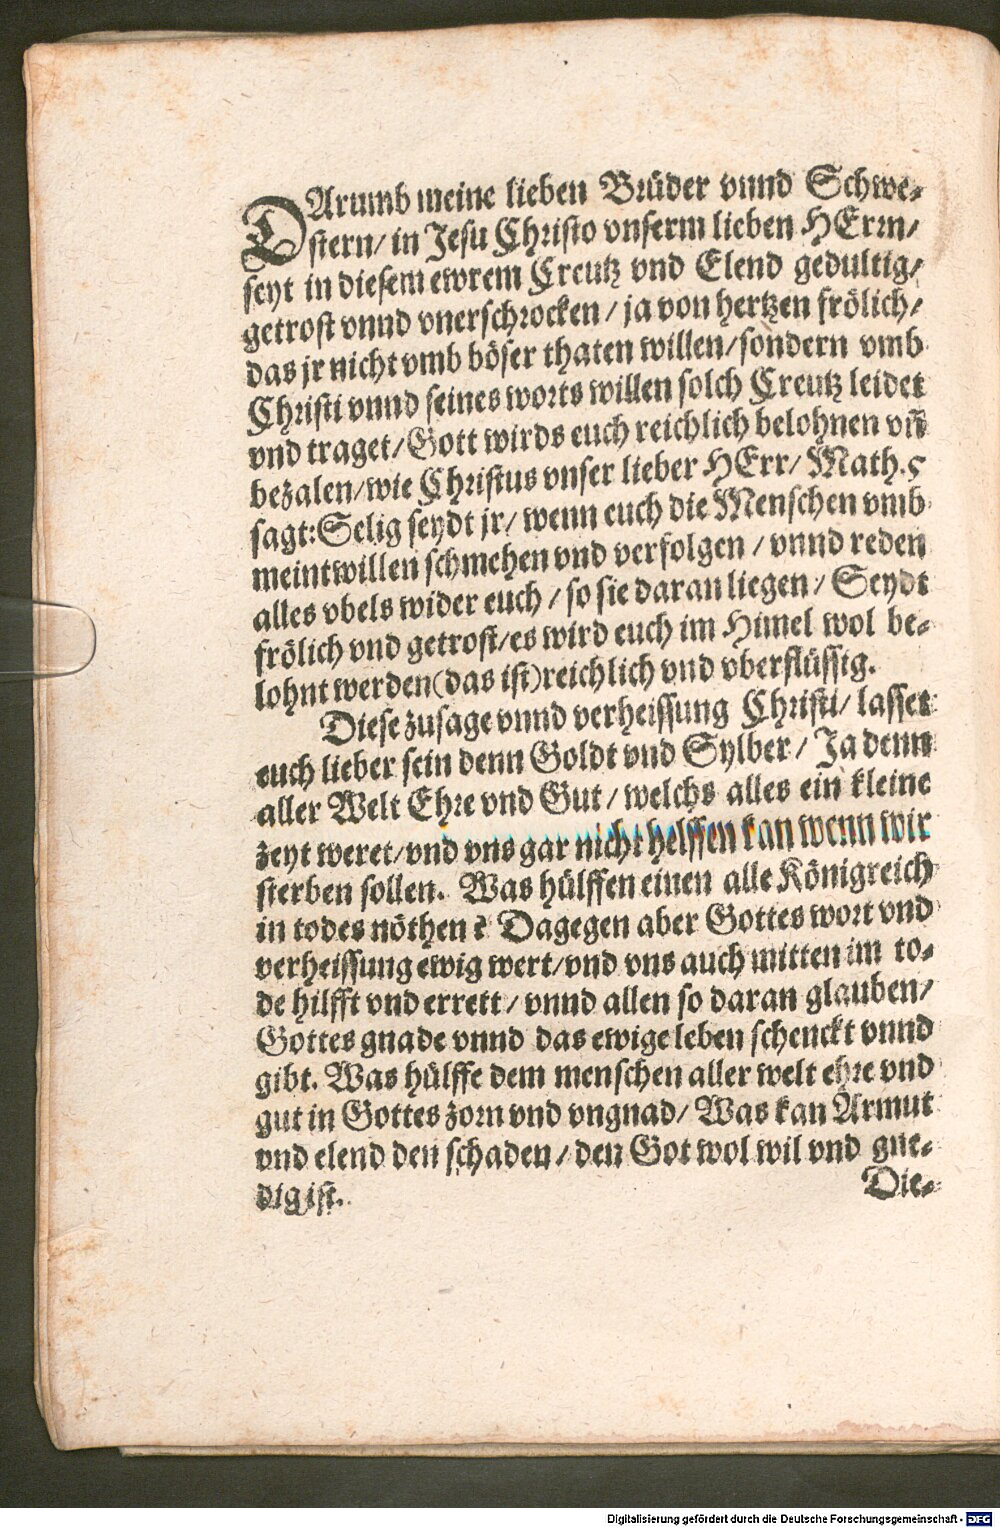 DArumb meine lieben Brüder vnnd Schwe-
stern/ in Jesu Christo vnserm lieben HErrn/
seyt in diesem ewrem Creutz vnd Elend gedultig/
getrost vnnd vnerschrocken / ja von hertzen frölich/
das jr nicht vmb böser thaten willen/sondern vmb
Christi vnnd seines worts willen solch Creutz leidet
vnd traget/Gott wirds euch reichlich belohnen vñ
bezalen/wie Christus vnser lieber HErr/ Math.5
sagt:Selig seydt jr/ wenn euch die Menschen vmb
meintwillen schmehen vnd verfolgen / vnnd reden
alles vbels wider euch / so sie daran liegen/ Seydt
frölich vnd getrost/es wird euch im Himel wol be-
lohnt werden(das ist)reichlich vnd vberflüssig.
Diese zusage vnnd verheissung Christi/ lasset
euch lieber sein denn Goldt vnd Sylber/ Ja denn
aller Welt Ehre vnd Gut / welchs alles ein kleine
zeyt weret/vnd vns gar nicht helffen kan wenn wir
sterben sollen. Was hülffen einen alle Königreich
in todes nöthen? Dagegen aber Gottes wort vnd
verheissung ewig wert/vnd vns auch mitten im to-
de hilfft vnd errett/ vnnd allen so daran glauben/
Gottes gnade vnnd das ewige leben schenckt vnnd
gibt. Was hülffe dem menschen aller welt ehre vnd
gut in Gottes zorn vnd vngnad/ Was kan Armut
vnd elend den schaden/ den Got wol wil vnd gne-
dig ist.
Die-
Digitalisierung gefördert durch die Deutsche Forschungsgemeinschaft - DFG